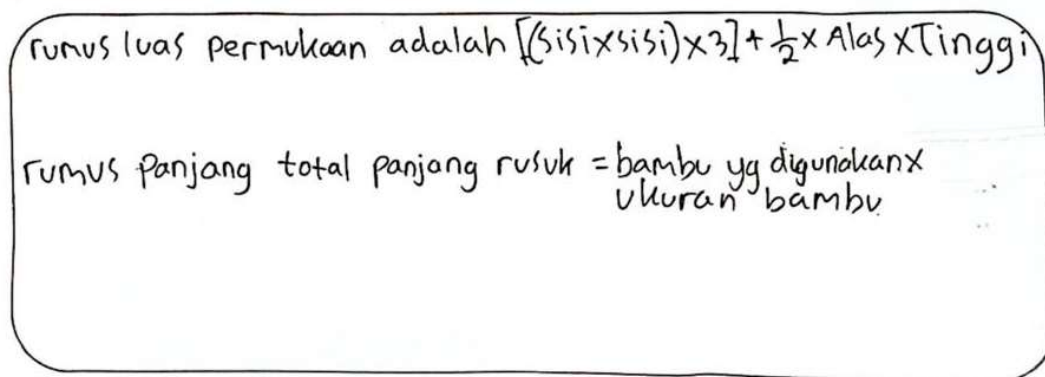 rumus luas permukaan adalah [(sisixsisi)x3]+½x Alas xTinggi
rumus Panjang total panjang rusuk = bambu yg digunakanx
ukuran bambu